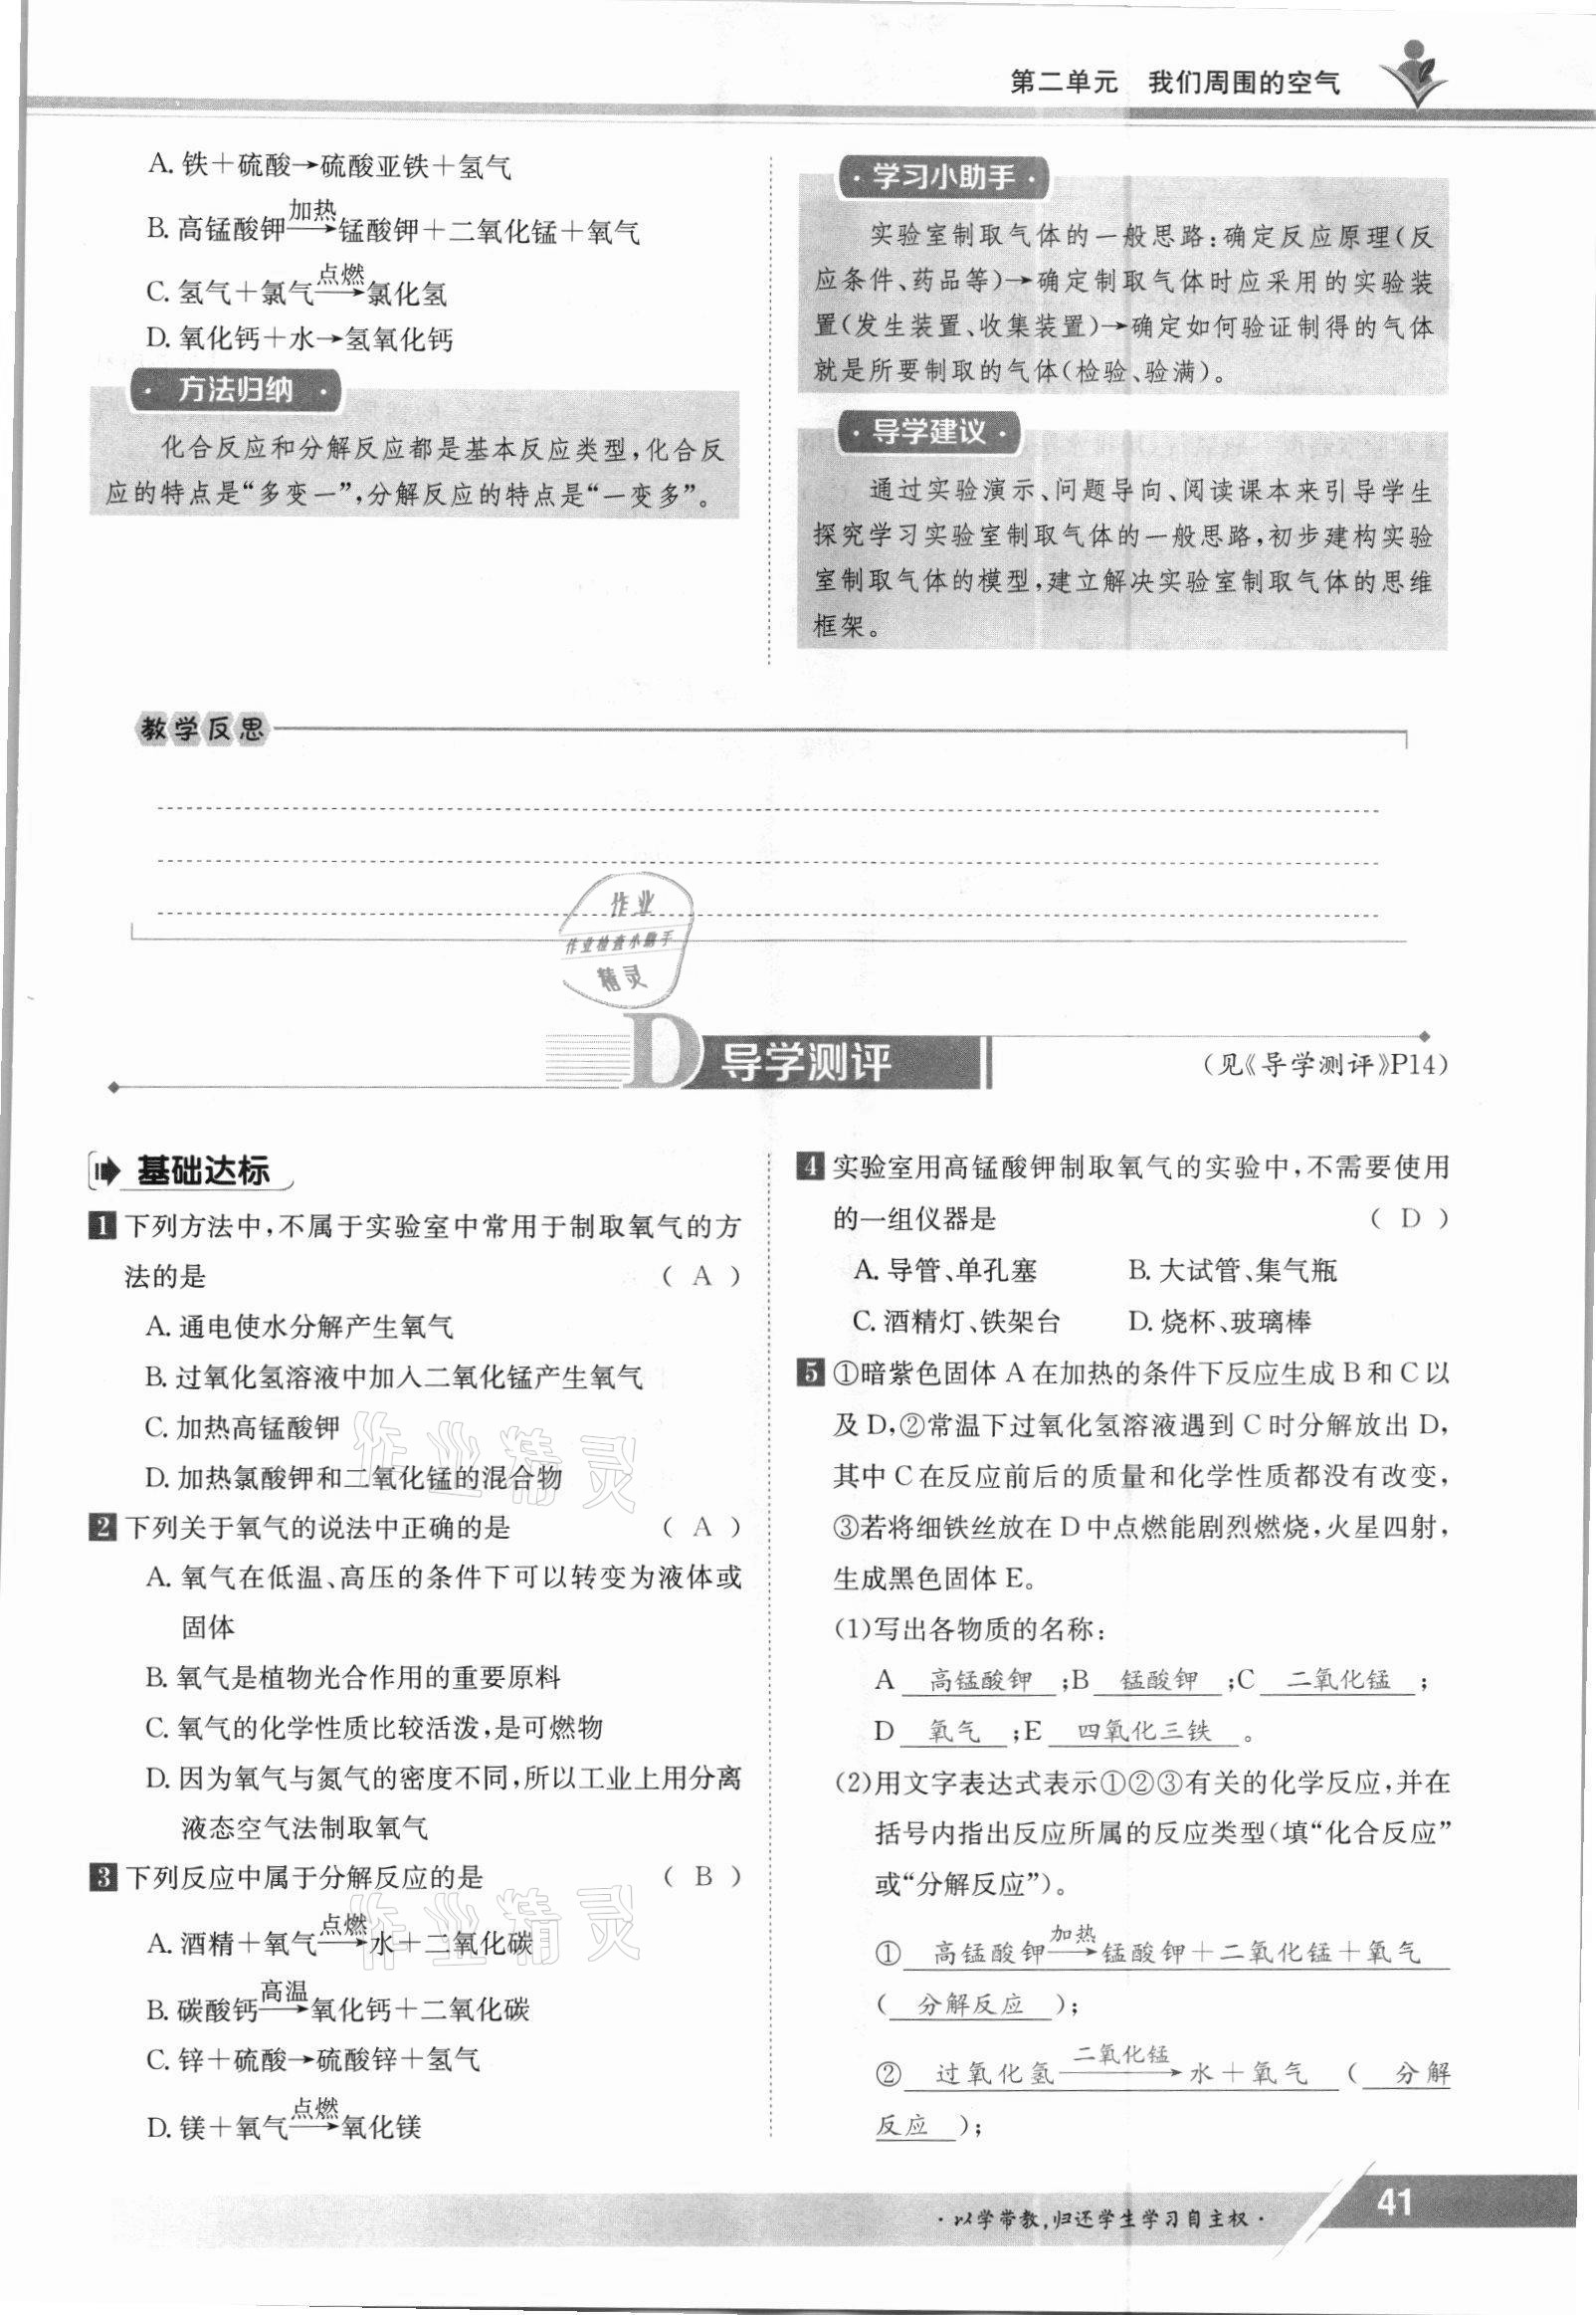 第二单元 我们周围的空气
A. 铁＋硫酸→硫酸亚铁＋氢气
B. 高锰酸钾 加热→ 锰酸钾＋二氧化锰＋氧气
C. 氢气＋氯气 点燃→ 氯化氢
D. 氧化钙＋水→氢氧化钙
· 方法归纳 ·
化合反应和分解反应都是基本反应类型,化合反
应的特点是“多变一”,分解反应的特点是“一变多”。
· 学习小助手 ·
实验室制取气体的一般思路:确定反应原理(反
应条件、药品等)→确定制取气体时应采用的实验装
置(发生装置、收集装置)→确定如何验证制得的气体
就是所要制取的气体(检验、验满)。
· 导学建议 ·
通过实验演示、问题导向、阅读课本来引导学生
探究学习实验室制取气体的一般思路,初步建构实验
室制取气体的模型,建立解决实验室制取气体的思维
框架。
教学反思
作业
作业检查小助手
精灵
D 导学测评
(见《导学测评》P14)
基础达标
1 下列方法中,不属于实验室中常用于制取氧气的方
法的是 ( A )
A. 通电使水分解产生氧气
B. 过氧化氢溶液中加入二氧化锰产生氧气
C. 加热高锰酸钾
D. 加热氯酸钾和二氧化锰的混合物
作业精灵
2 下列关于氧气的说法中正确的是 ( A )
A. 氧气在低温、高压的条件下可以转变为液体或
固体
B. 氧气是植物光合作用的重要原料
C. 氧气的化学性质比较活泼,是可燃物
D. 因为氧气与氮气的密度不同,所以工业上用分离
液态空气法制取氧气
3 下列反应中属于分解反应的是 ( B )
作业精灵
A. 酒精＋氧气 点燃→ 水＋二氧化碳
B. 碳酸钙 高温→ 氧化钙＋二氧化碳
C. 锌＋硫酸→硫酸锌＋氢气
D. 镁＋氧气 点燃→ 氧化镁
4 实验室用高锰酸钾制取氧气的实验中,不需要使用
的一组仪器是 ( D )
A. 导管、单孔塞 B. 大试管、集气瓶
C. 酒精灯、铁架台 D. 烧杯、玻璃棒
5 ①暗紫色固体 A 在加热的条件下反应生成 B 和 C 以
及 D,②常温下过氧化氢溶液遇到 C 时分解放出 D,
其中 C 在反应前后的质量和化学性质都没有改变,
③若将细铁丝放在 D 中点燃能剧烈燃烧,火星四射,
生成黑色固体 E。
(1)写出各物质的名称:
A 高锰酸钾 ;B 锰酸钾 ;C 二氧化锰 ;
D 氧气 ;E 四氧化三铁 。
(2)用文字表达式表示①②③有关的化学反应,并在
括号内指出反应所属的反应类型(填“化合反应”
或“分解反应”)。
① 高锰酸钾 加热→ 锰酸钾＋二氧化锰＋氧气
( 分解反应 );
② 过氧化氢 二氧化锰→ 水＋氧气 ( 分解
反应 );
· 以学带教,归还学生学习自主权 ·
41